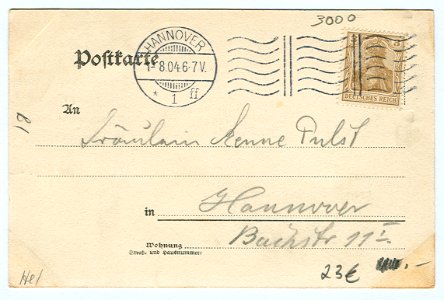 3000
HANNOVER
1-8.04.6-7V.
* 1 ff
Postkarte
DEUTSCHES REICH
An
Fräulein Aenne Pulst
in Hannover
Wohnung
Straße und Hausnummer
Bachstr 11 I
23€
Hel